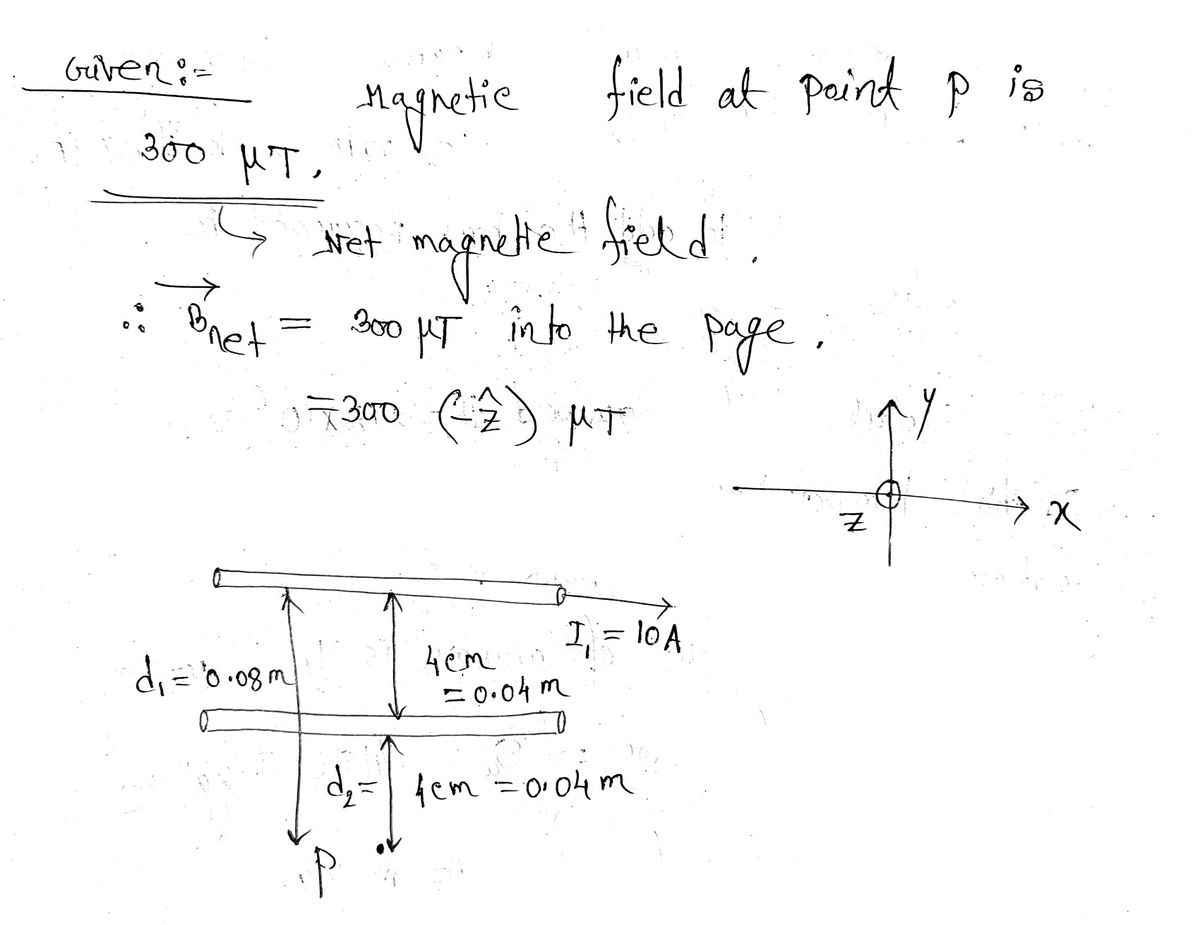 Given :-
Magnetic field at point P is
300 μT.
↳ Net magnetic field.
∴ B⃗net = 300 μT into the page.
= 300 (-ẑ) μT
y
x
z
I₁ = 10A
4cm
= 0.04 m
d₁ = 0.08 m
d₂ = 4cm = 0.04 m
P